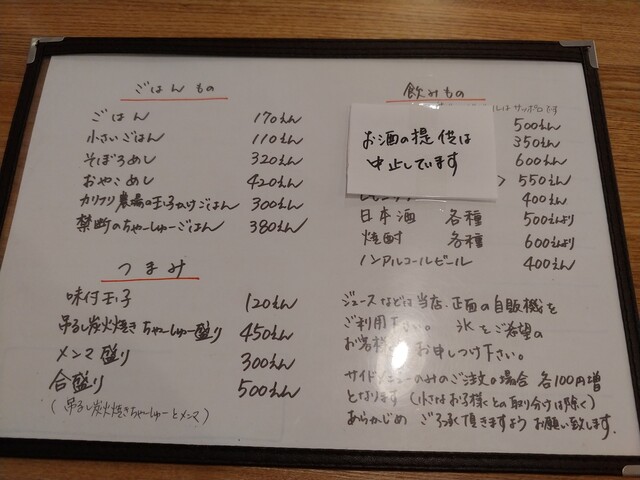 ごはんもの
ごはん 170えん
小さいごはん 110えん
そぼろめし 320えん
おやこめし 420えん
カリフリ農場の玉子かけごはん 300えん
禁断のちゃーしゅーごはん 380えん
つまみ
味付玉子 120えん
吊るし炭火焼きちゃーしゅー盛り 450えん
メンマ盛り 300えん
合盛り 500えん
(吊るし炭火焼きちゃーしゅーとメンマ)
飲みもの
ルは サッポロです
お酒の提供は
中止しています
500えん
350えん
600えん
550えん
400えん
日本酒 各種 500えんより
焼酎 各種 600えんより
ノンアルコールビール 400えん
ジュースなどは当店、正面の自販機を
ご利用下さい。 氷をご希望の
お客様は お申しつけ下さい。
サイドメニューのみのご注文の場合 各100円増
となります (小さなお子様との取り分けは除く)
あらかじめ ご了承頂きますよう お願い致します。